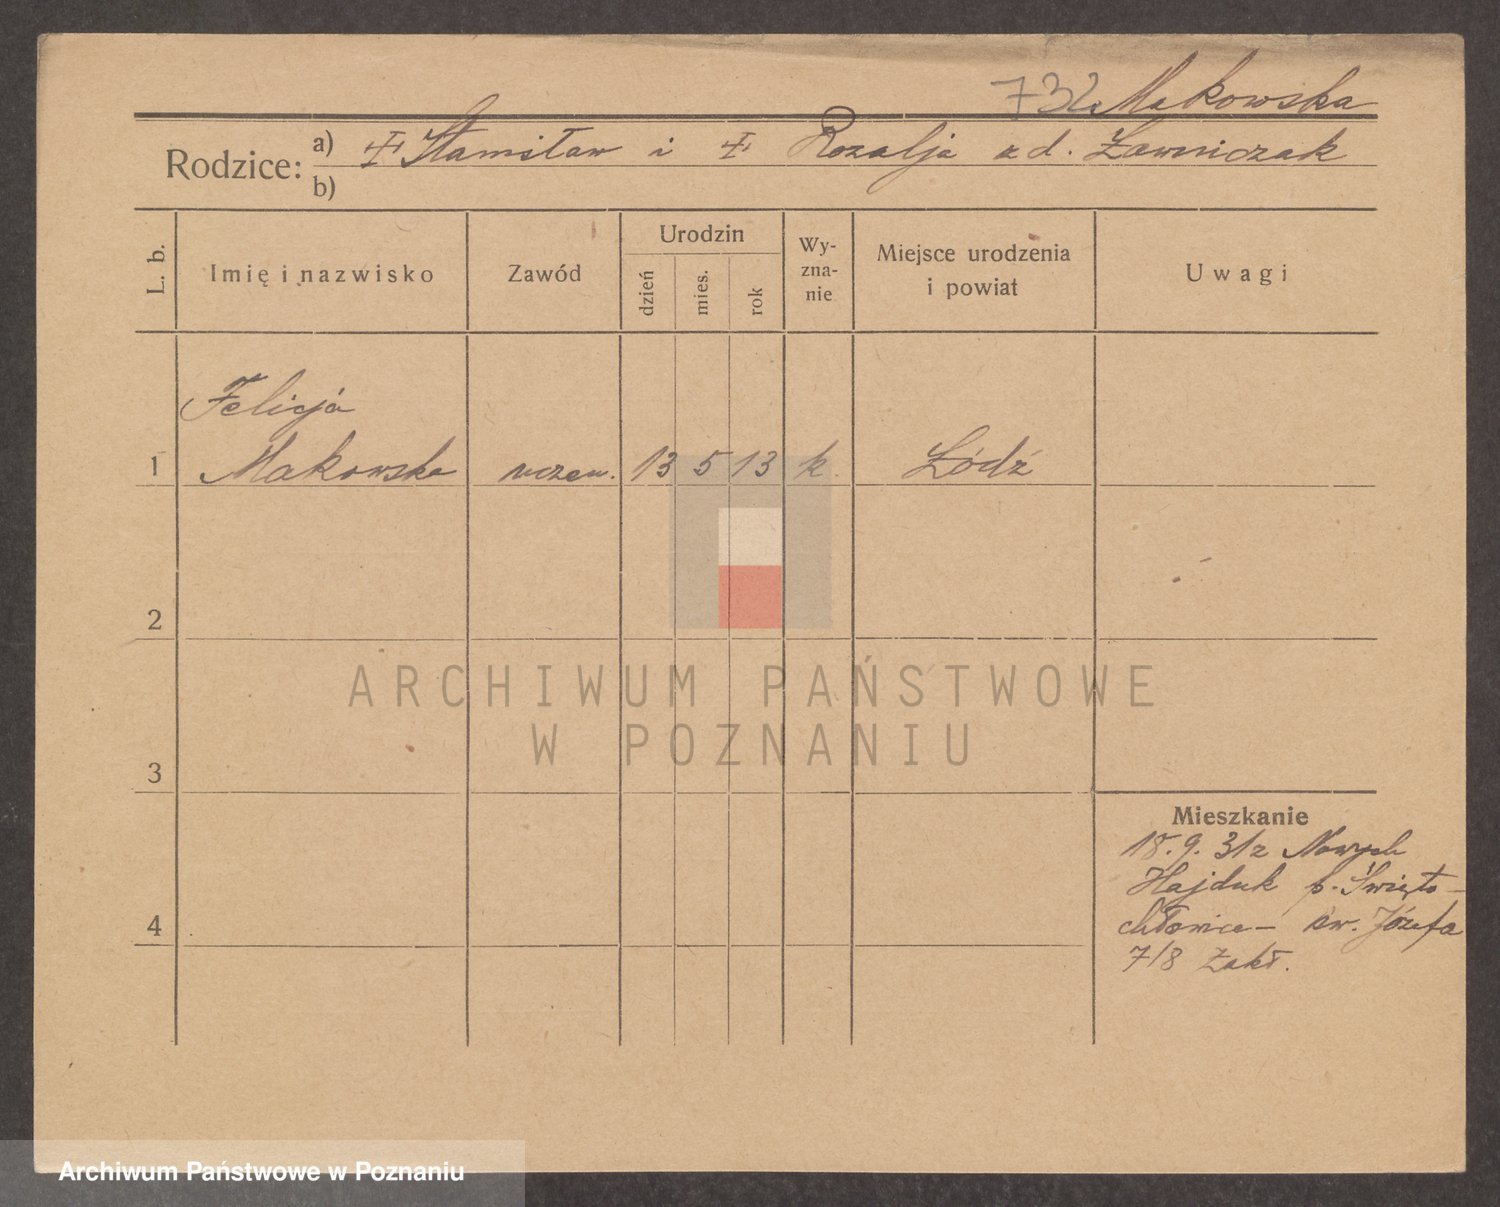 732 Makowska
Rodzice: a) Stanisław i Rozalja z d. Ławniczak
b)
L. b. Imię i nazwisko Zawód Urodzin dzień mies. rok Wy-zna-nie Miejsce urodzenia i powiat Uwagi
Felicja
1 Makowska uczen. 13 5 13 k. Łódź
2
ARCHIWUM PAŃSTWOWE
W POZNANIU
3
Mieszkanie
18.9.31 z Nowych
Hajduk p. Święto-
chłowice - św. Józefa
4
7/8 Zakł.
Archiwum Państwowe w Poznaniu